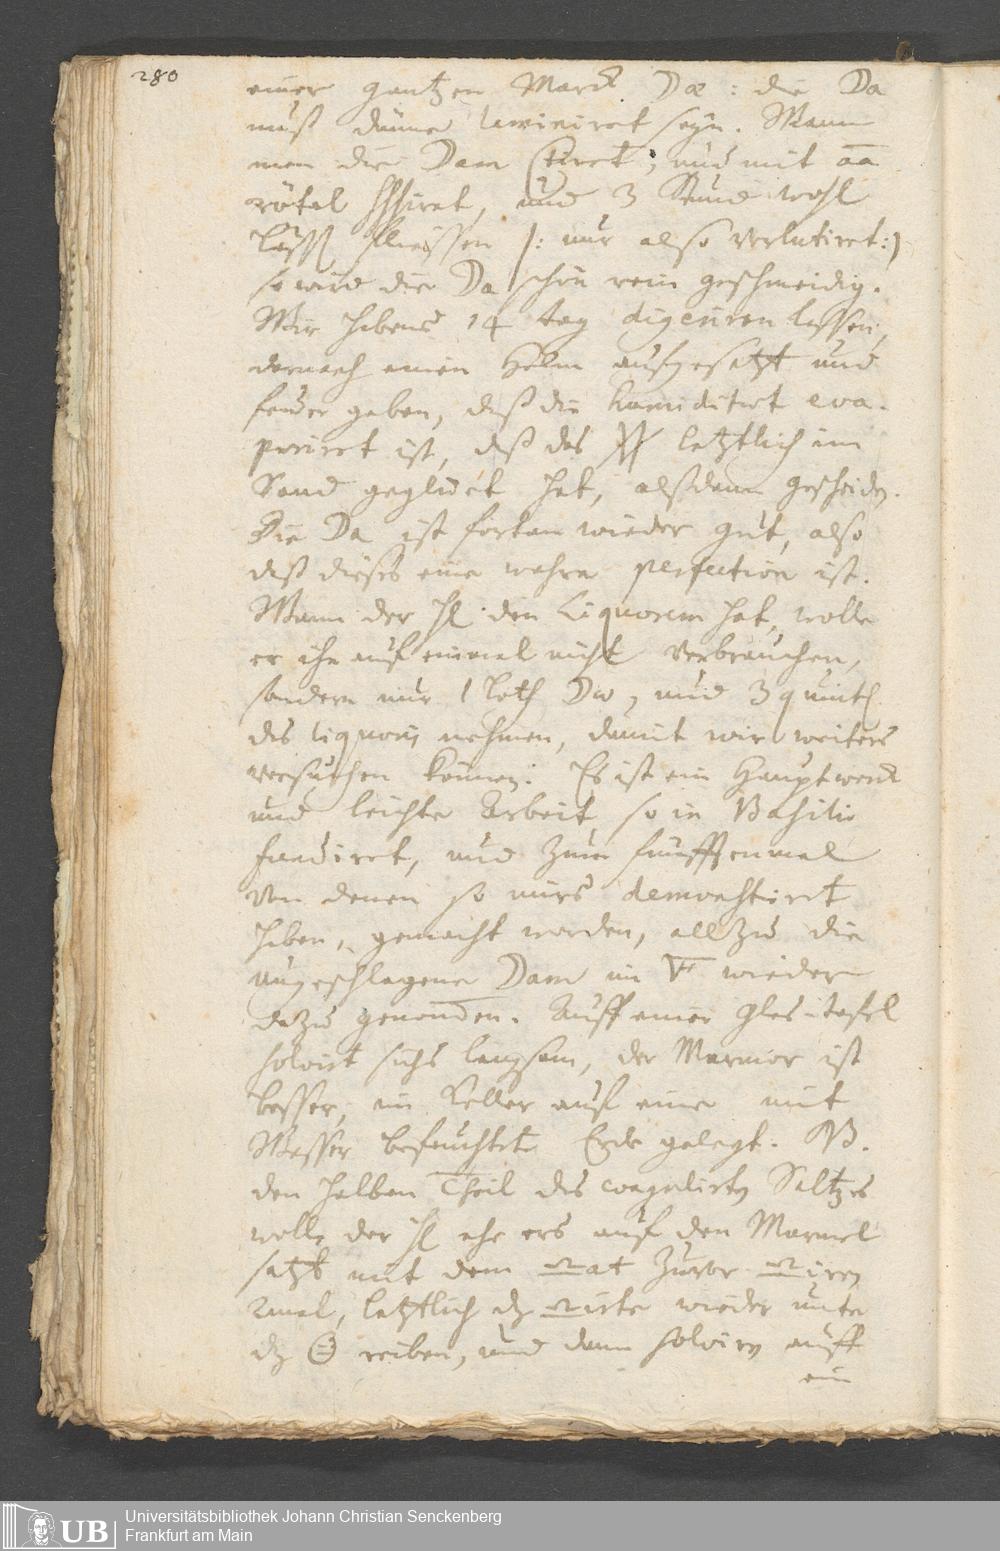 280
einer gantzen Marck Da : die Da
muß dünne laminiret seyn. Wann
man die Dam stirct, und mit aa
rötel ir et, und 3 Stund wohl
lässt fliessen /: nur also verlutiret :/
so wird die Da schön rein geschmeidig.
Wir habens 14 tag digeriren lassen,
darnach einen Helm aufgesetzt und
feuer geben, daß die humiditet eva-
poriret ist, daß das letztlich im
Sand geglüet hat, alßdann gescheiden.
Die Da ist fortan wieder gut, also
daß dieses eine wahre perfection ist.
Wann der H den Liquorem hat, wolle
er ihn auf einmal nicht verbrauchen,
sondern nur 1 loth Da, und 3 quintl
des liquoris nehmen, damit wir weiters
versuchen können. Es ist ein Hauptwerck
und leichte Arbeit, so in Basilio
fundiret, und zum fünfftenmal
von denen so mirs demonstrirt
haben, gemacht worden, allzu die
nugeschlagene Dam im wieder
dazu genomen. Auff einer Glas-tafel
solvirt sichs langsam, der Marmor ist
besser, im Keller auf eine mit
Wasser befeuchtete Erde gelegt. NB.
den halben Theil des coagulirten Saltzes
wolle der H ehe ers auf den Marmel
setzt mit dem at zuvor iren
2mal, letztlich dz irte wieder unter
dz reiben, und dann solviren auff
ein
UB
Universitätsbibliothek Johann Christian Senckenberg
Frankfurt am Main